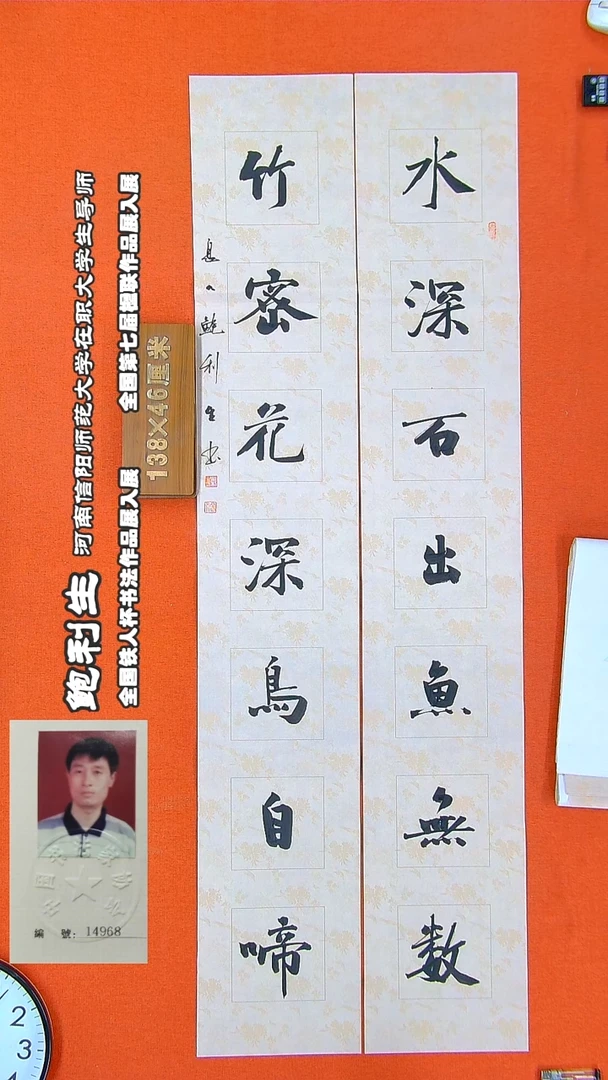 水深石出魚無數
竹密花深鳥自啼
息人鲍利生书
138×46厘米
鲍利生
河南信阳师范大学在职大学生导师
全国铁人杯书法作品展入展
全国第七届楹联作品展入展
14968
2
3
4